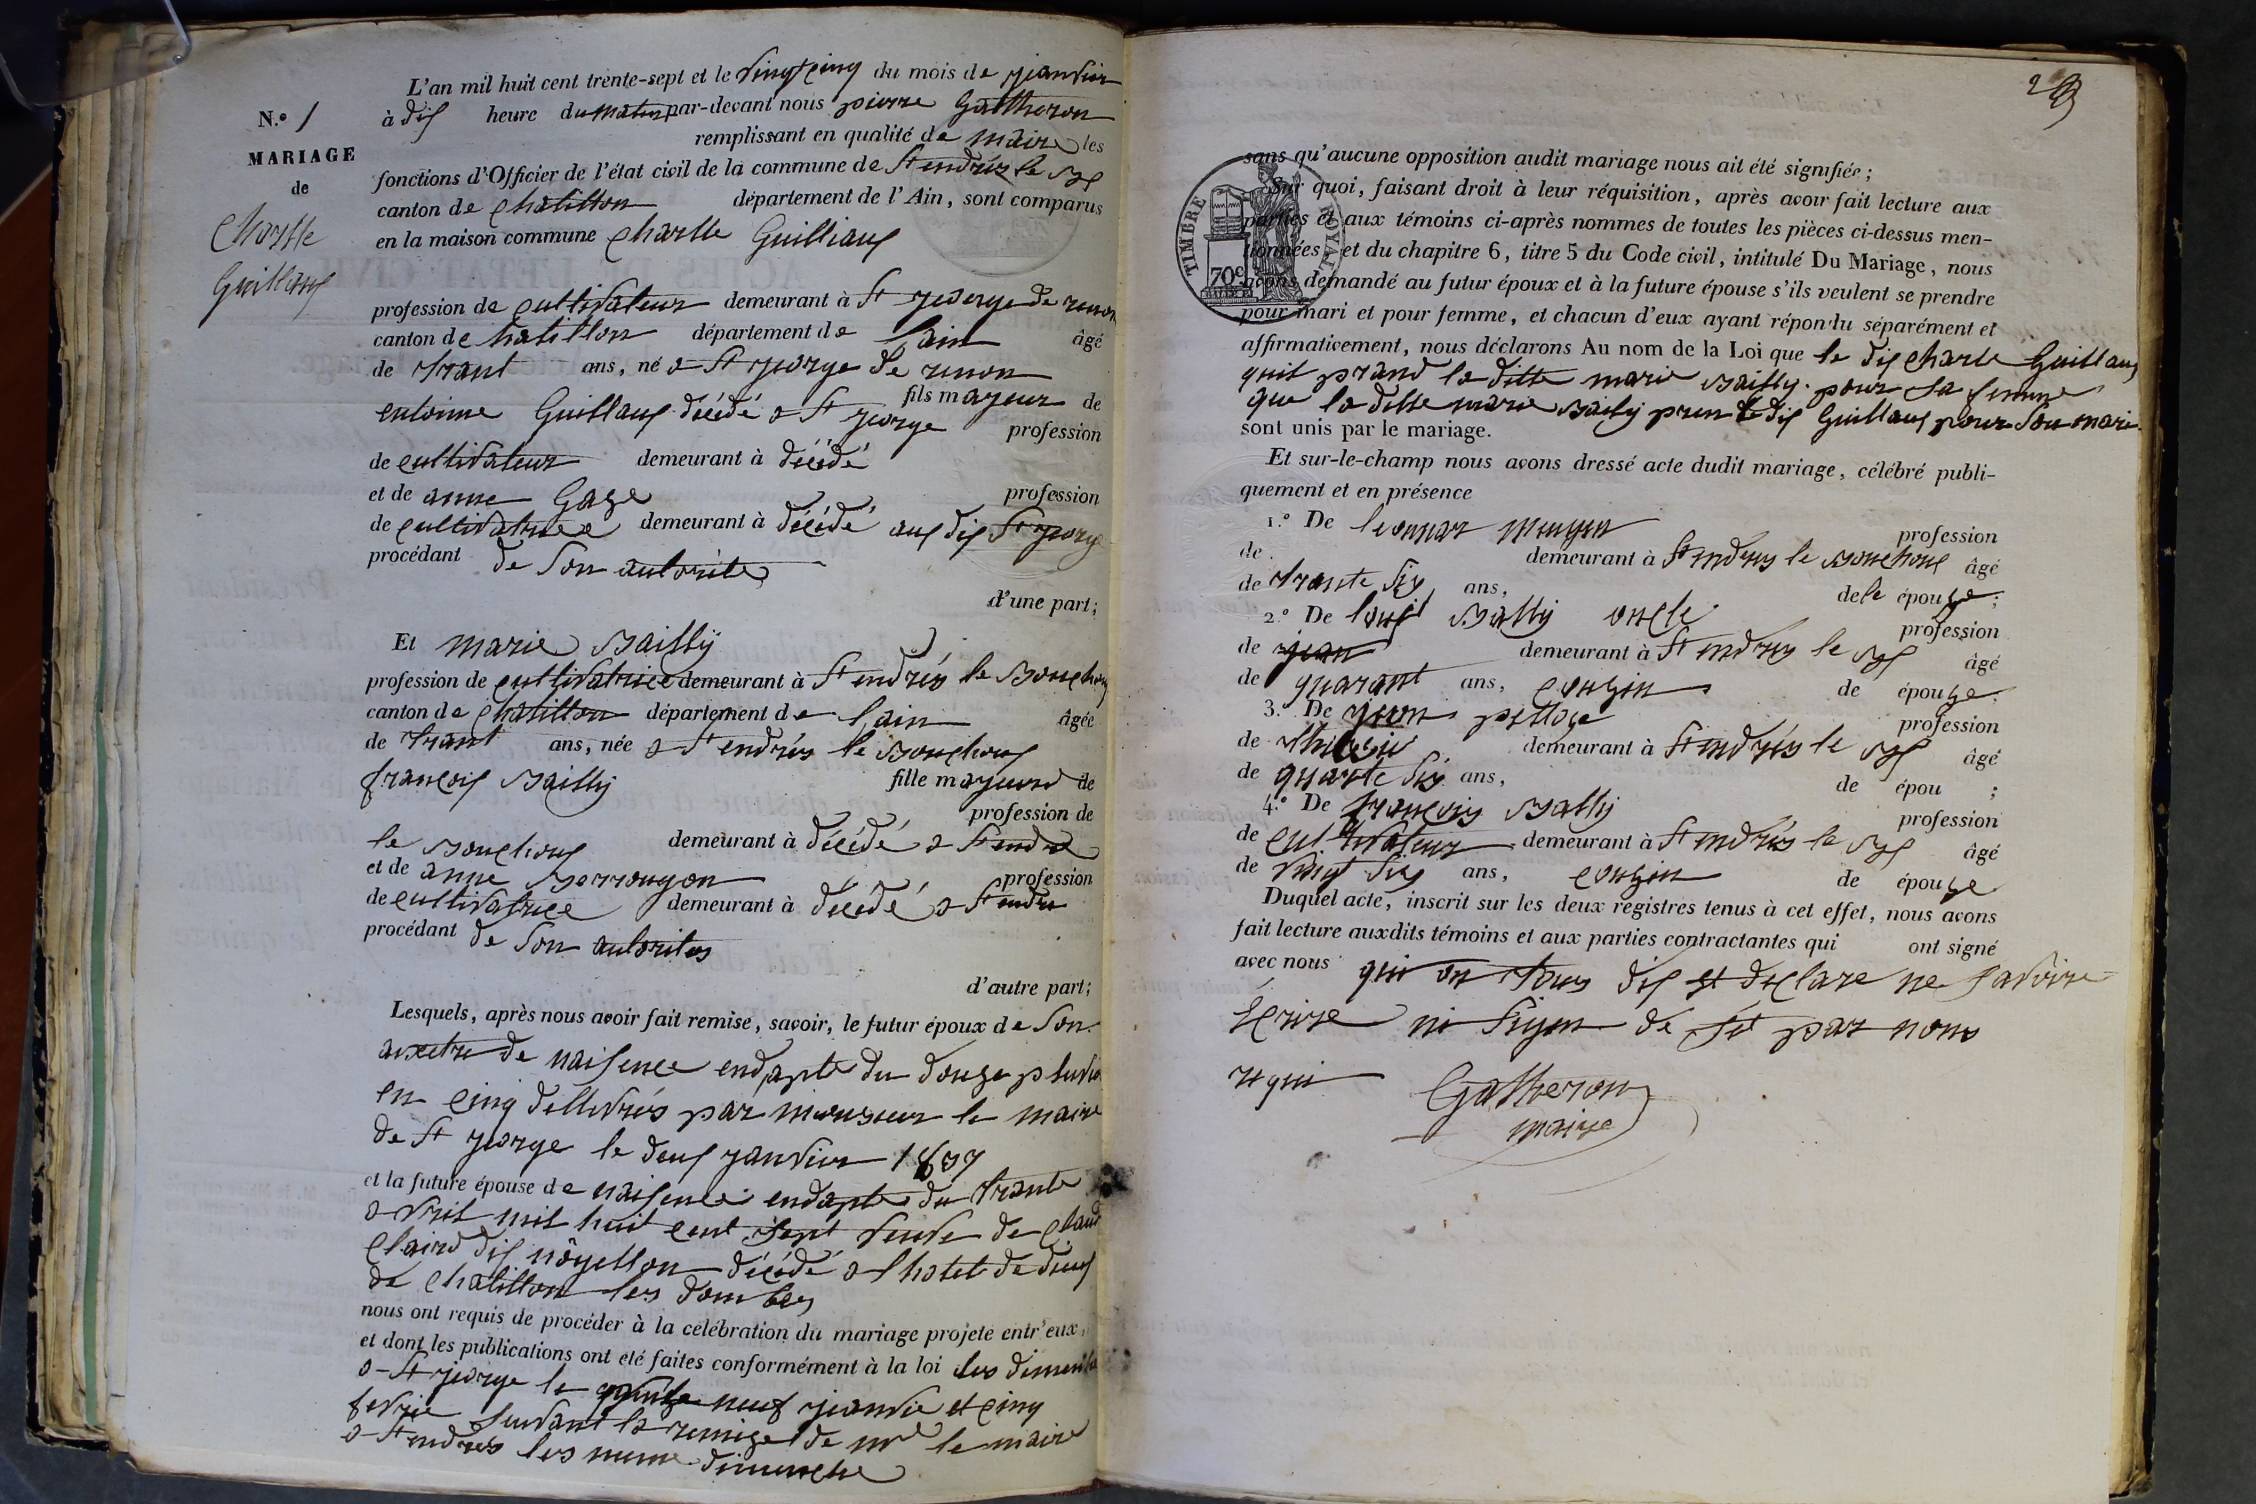 N.º 1
MARIAGE
de
Charlle
Guillauf
L'an mil huit cent trente-sept et le vingt cinq du mois de jeanvier
à dif heure du matin par-devant nous pierre Gattheron
remplissant en qualité de maire les
fonctions d'Officier de l'état civil de la commune de St endrés le
canton de Chatillon département de l'Ain, sont comparus
en la maison commune Charlle Guilliauf
profession de cultivateur demeurant à St jeorge de renon
canton de Chatillon département de lain âgé
de trant ans, né a St jeorge de renon
fils majeur de
entoinne Guillauf décédé a St jeorge profession
de cultivateur demeurant à décédé
et de anne Gaze profession
de cultivatrice demeurant à décédé auf dif St jeorge
procédant de son autorite
d'une part;
Et marie Bailly
profession de cultivatrice demeurant à St endrés le Bouchouf
canton de Chatillon département de lain âgée
de trant ans, née a St endrés le Bouchouf
françoif Bailly fille majeure de
profession de
le Bouchouf demeurant à décédé a St endre
et de anne profession
de cultivatrice demeurant à décédé a St endre
procédant de son autorites
d'autre part;
Lesquels, après nous avoir fait remise, savoir, le futur époux de son
de naisence endapte du douze pluvio
en cinq dellivrés par monsieur le maire
de St jeorge le deuf janvier 1837
et la future épouse de naisence endapte du trante
avril mil huit cent sept veuve de claud
Claird dif nôyellon décédé a lhotel de dieuf
de Chatillon les dombes
nous ont requis de procéder à la célébration du mariage projeté entr'eux,
et dont les publications ont été faites conformément à la loi les dimenche
a St jeorge le neuf jeanvie et cinq
fevrie suivant la remize de mr le maire
a St endres les meme dimenche
23
TIMBRE ROYAL
70c
sans qu'aucune opposition audit mariage nous ait été signifiée;
Sur quoi, faisant droit à leur réquisition, après avoir fait lecture aux
parties et aux témoins ci-après nommés de toutes les pièces ci-dessus men-
tionnées et du chapitre 6, titre 5 du Code civil, intitulé Du Mariage, nous
avons demandé au futur époux et à la future épouse s'ils veulent se prendre
pour mari et pour femme, et chacun d'eux ayant répondu séparément et
affirmativement, nous déclarons Au nom de la Loi que le dif charle Guillauf
quit prand la ditte marie Bailly pour sa femme
que la ditte marie Baily pren le dif Guillauf pour son marie
sont unis par le mariage.
Et sur-le-champ nous avons dressé acte dudit mariage, célébré publi-
quement et en présence
1.º De leonnar profession
de demeurant à St endres le Bouchouf âgé
de trante six ans, de le épouze;
2.º De Bally oncle profession
de jean demeurant à St endres le âgé
de quarant ans, couzin de épouze
3.º De profession
de demeurant à St endrés le âgé
de quarte six ans, de épou ;
4.º De françois Bally profession
de cultivateur demeurant à St endrés le âgé
de vingt six ans, couzin de épouze
Duquel acte, inscrit sur les deux registres tenus à cet effet, nous avons
fait lecture auxdits témoins et aux parties contractantes qui ont signé
avec nous qui on tous dif et declare ne savoire
Écrire ni de par nous
requi
Gattheron
maire